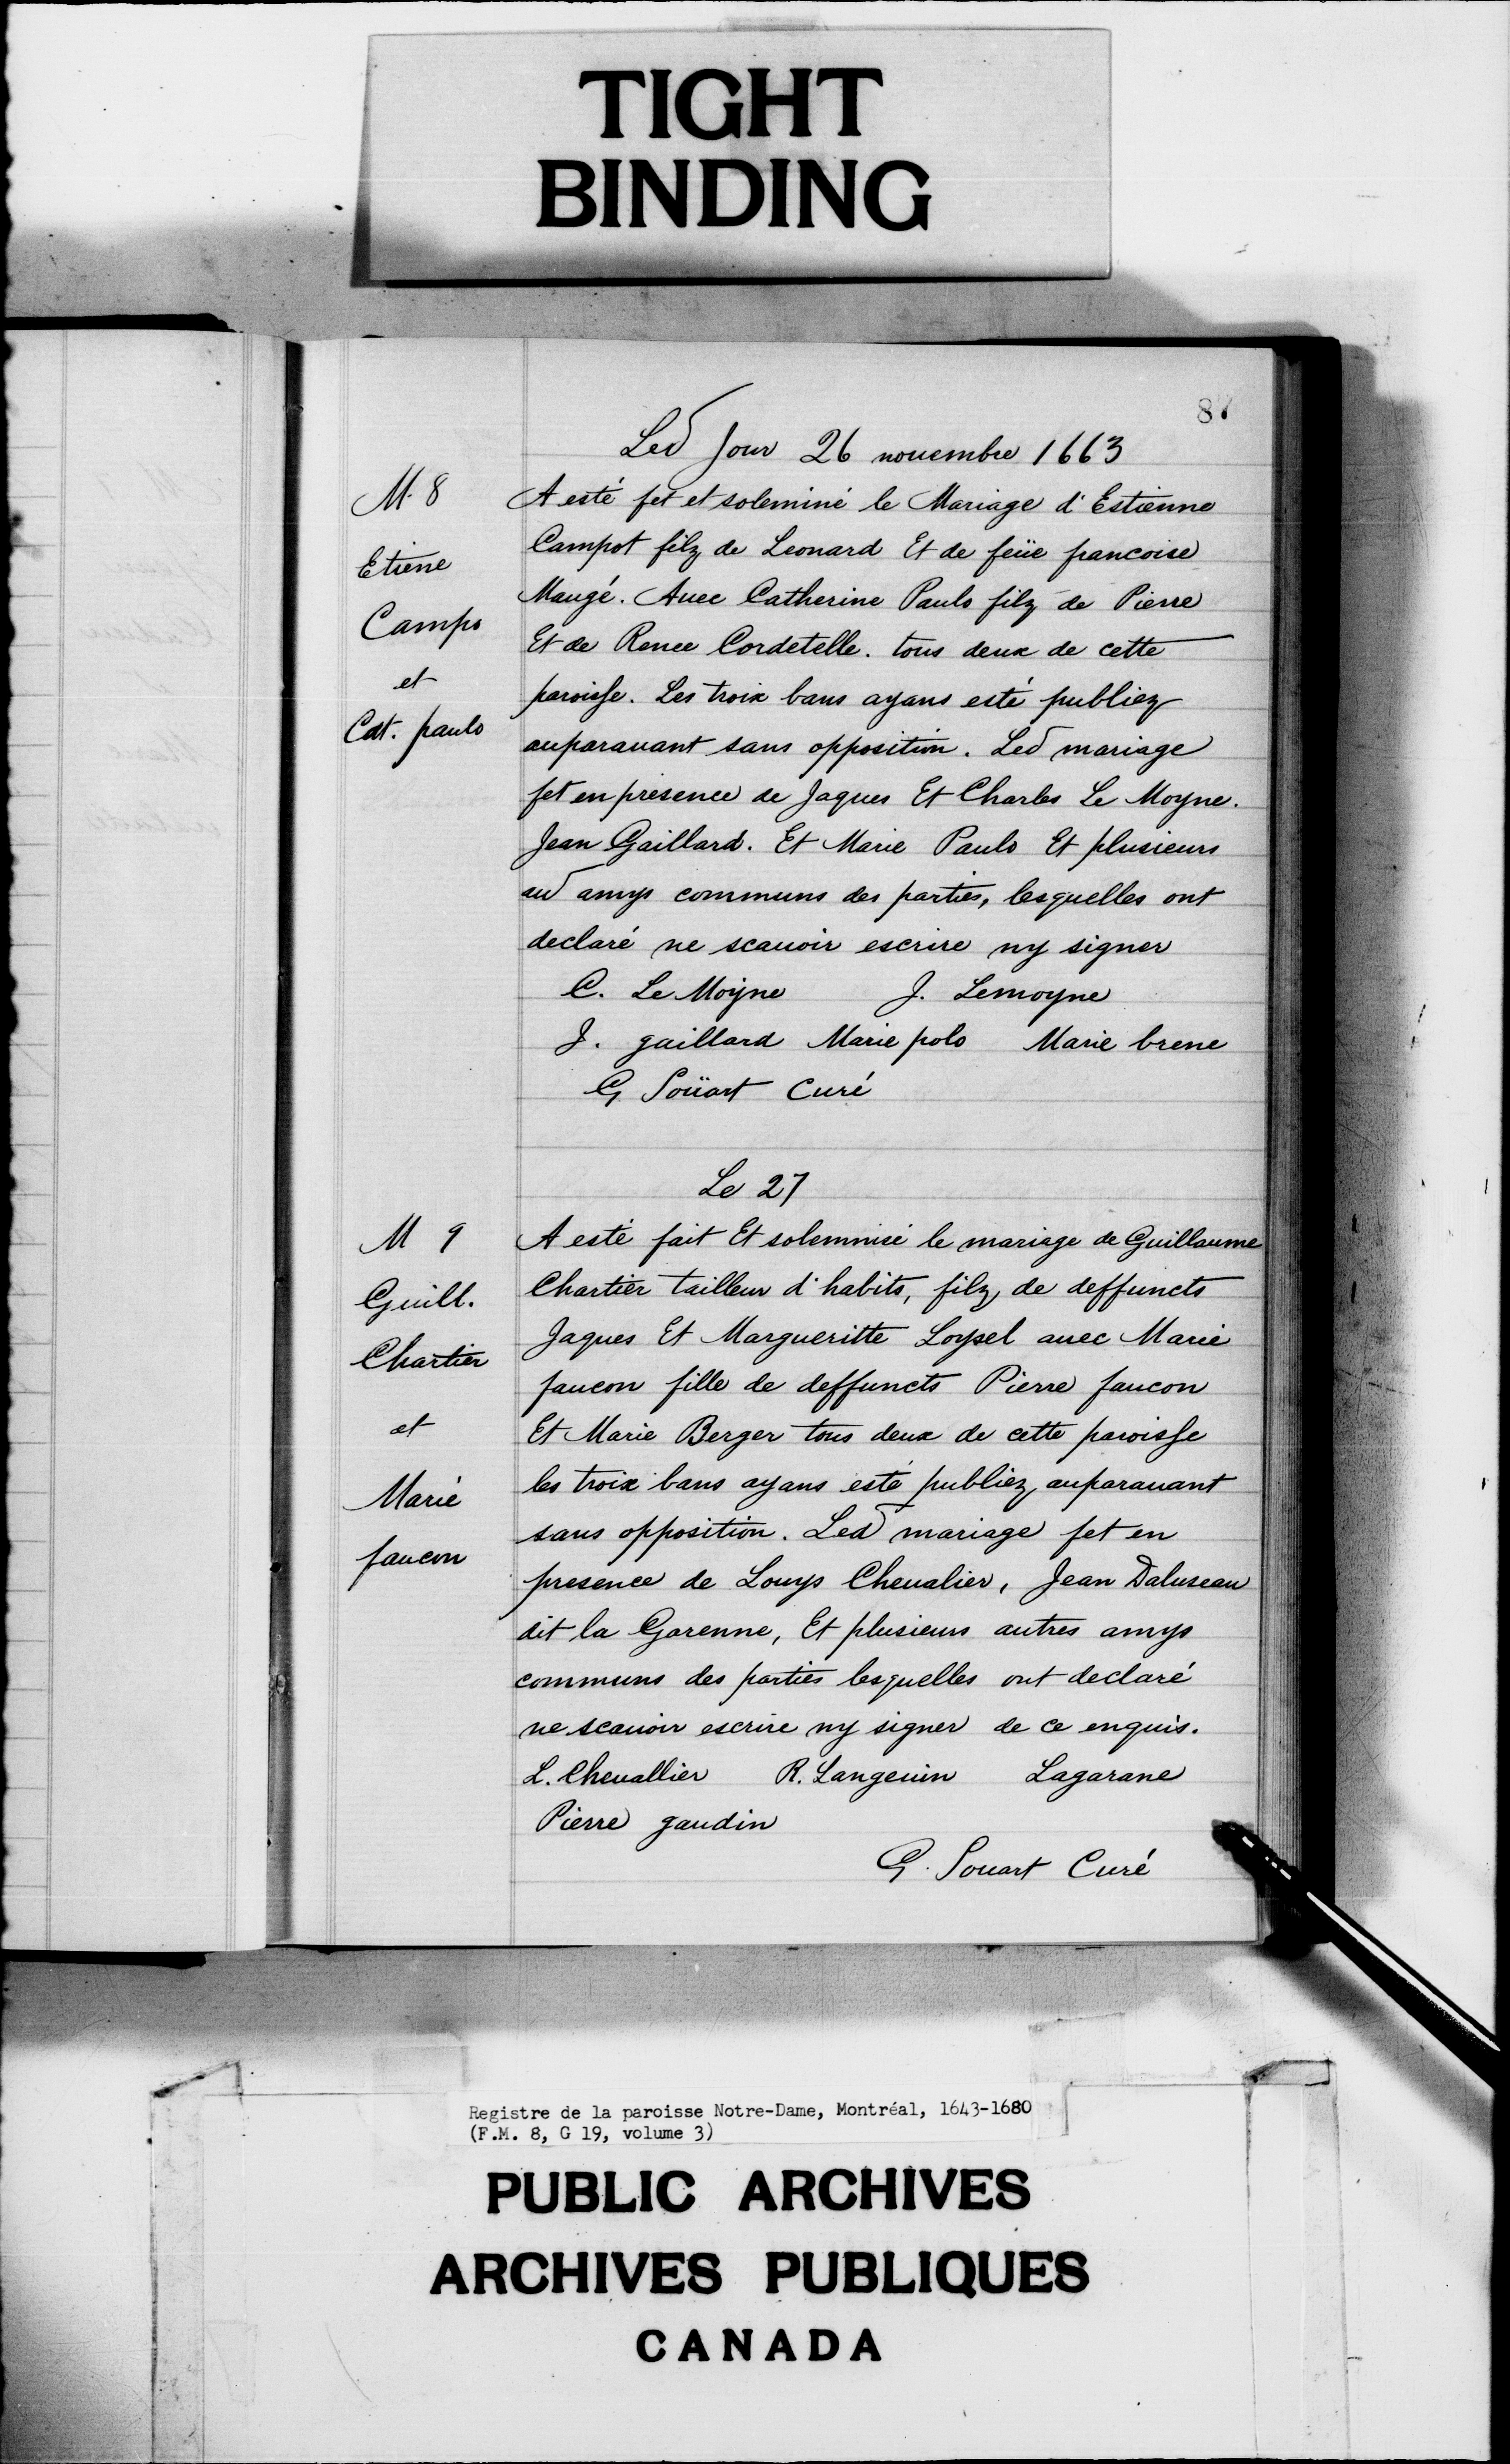 TIGHT
BINDING
87
Led Jour 26 nouembre 1663
M. 8
Etiene
Campo
et
Cat. paulo
A esté fet et soleminé le Mariage d'Estienne
Campot filz de Leonard Et de feüe francoise
Maugé. Auec Catherine Paulo filz de Pierre
Et de Renee Cordetelle. tous deux de cette
paroisse. Les troix bans ayans esté publiez
auparauant sans opposition. Led mariage
fet en presence de Jaques Et Charles Le Moyne.
Jean Gaillard. Et Marie Paulo Et plusieurs
au amys communs des parties, lesquelles ont
declaré ne scauoir escrire ny signer
C. Le Moyne J. Lemoyne
J. gaillard Marie polo Marie brene
G Soüart Curé
Le 27
M 9
Guill.
Chartier
et
Marie
faucon
A esté fait Et solemnisé le mariage de Guillaume
Chartier tailleur d'habits, filz de deffuncts
Jaques Et Margueritte Loysel auec Marie
faucon fille de deffuncts Pierre faucon
Et Marie Berger tous deux de cette paroisse
les troix bans ayans esté publiez auparauant
sans opposition. Led mariage fet en
presence de Louys Cheualier, Jean Daluseau
dit la Garenne, Et plusieurs autres amys
communs des parties lesquelles ont declaré
ne scauoir escrire ny signer de ce enquis.
L. Cheuallier R. Langeuin Lagarane
Pierre gaudin
G. Souart Curé
Registre de la paroisse Notre-Dame, Montréal, 1643-1680
(F.M. 8, G 19, volume 3)
PUBLIC ARCHIVES
ARCHIVES PUBLIQUES
CANADA